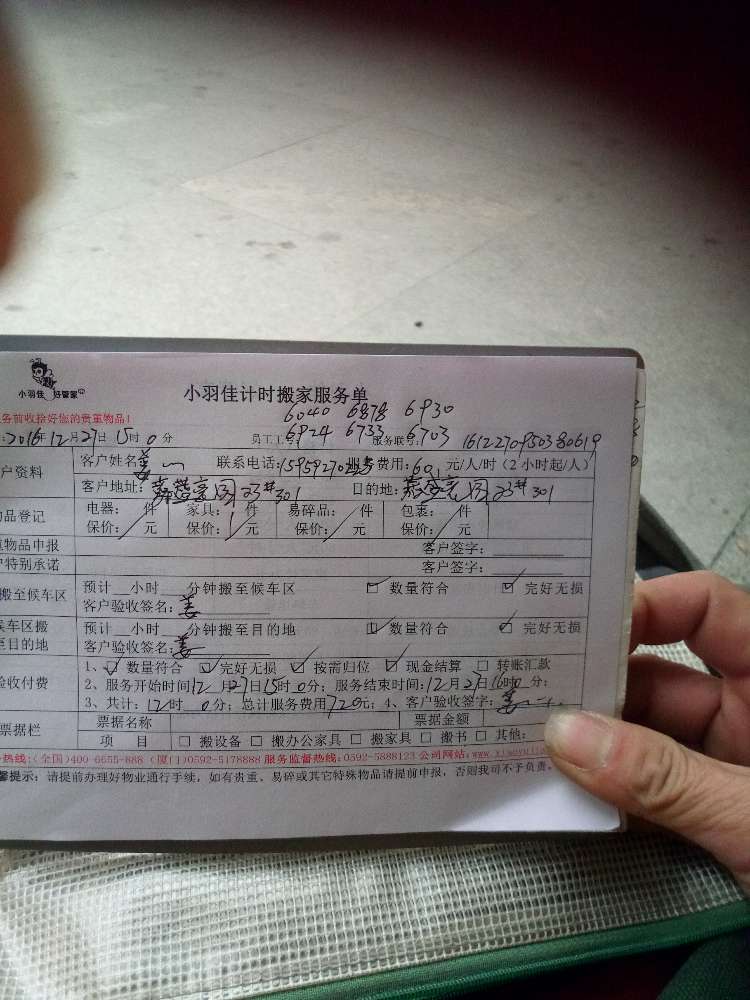 小羽佳 好管家
小羽佳计时搬家服务单
6040 6878 6930
务前收拾好您的贵重物品!
6924 6733 6703
: 2016年12月27日 15时0分 员工工 服务联号: 1612270950380619
户资料 客户姓名 姜 联系电话: 服务费用: 60 元/人/时(2小时起/人)
客户地址: 23# 301 目的地: 23# 301
物品登记 电器: 件 家具: 件 易碎品: 件 包裹: 件
保价: 元 保价: 元 保价: 元 保价: 元
物品申报 客户签字:
户特别承诺 客户签字:
搬至候车区 预计 小时 分钟搬至候车区 ☑ 数量符合 ☑ 完好无损
客户验收签名: 姜
候车区搬 预计 小时 分钟搬至目的地 ☑ 数量符合 ☑ 完好无损
至目的地 客户验收签名: 姜
1、☑ 数量符合 ☑ 完好无损 ☑ 按需归位 ☑ 现金结算 □ 转账汇款
验收付费 2、服务开始时间12月27日15时0分; 服务结束时间:12月27日16时0分;
3、共计:12时0分; 总计服务费用720元; 4、客户验收签字: 姜
票据栏 票据名称 票据金额
项 目 □ 搬设备 □ 搬办公家具 □ 搬家具 □ 搬书 □ 其他:
热线:(全国)400-6655-888 (厦门)0592-5178888 服务监督热线:0592-5888123 公司网站:www.xiaoyujia
馨提示: 请提前办理好物业通行手续, 如有贵重、易碎或其它特殊物品请提前申报, 否则我司不予负责。